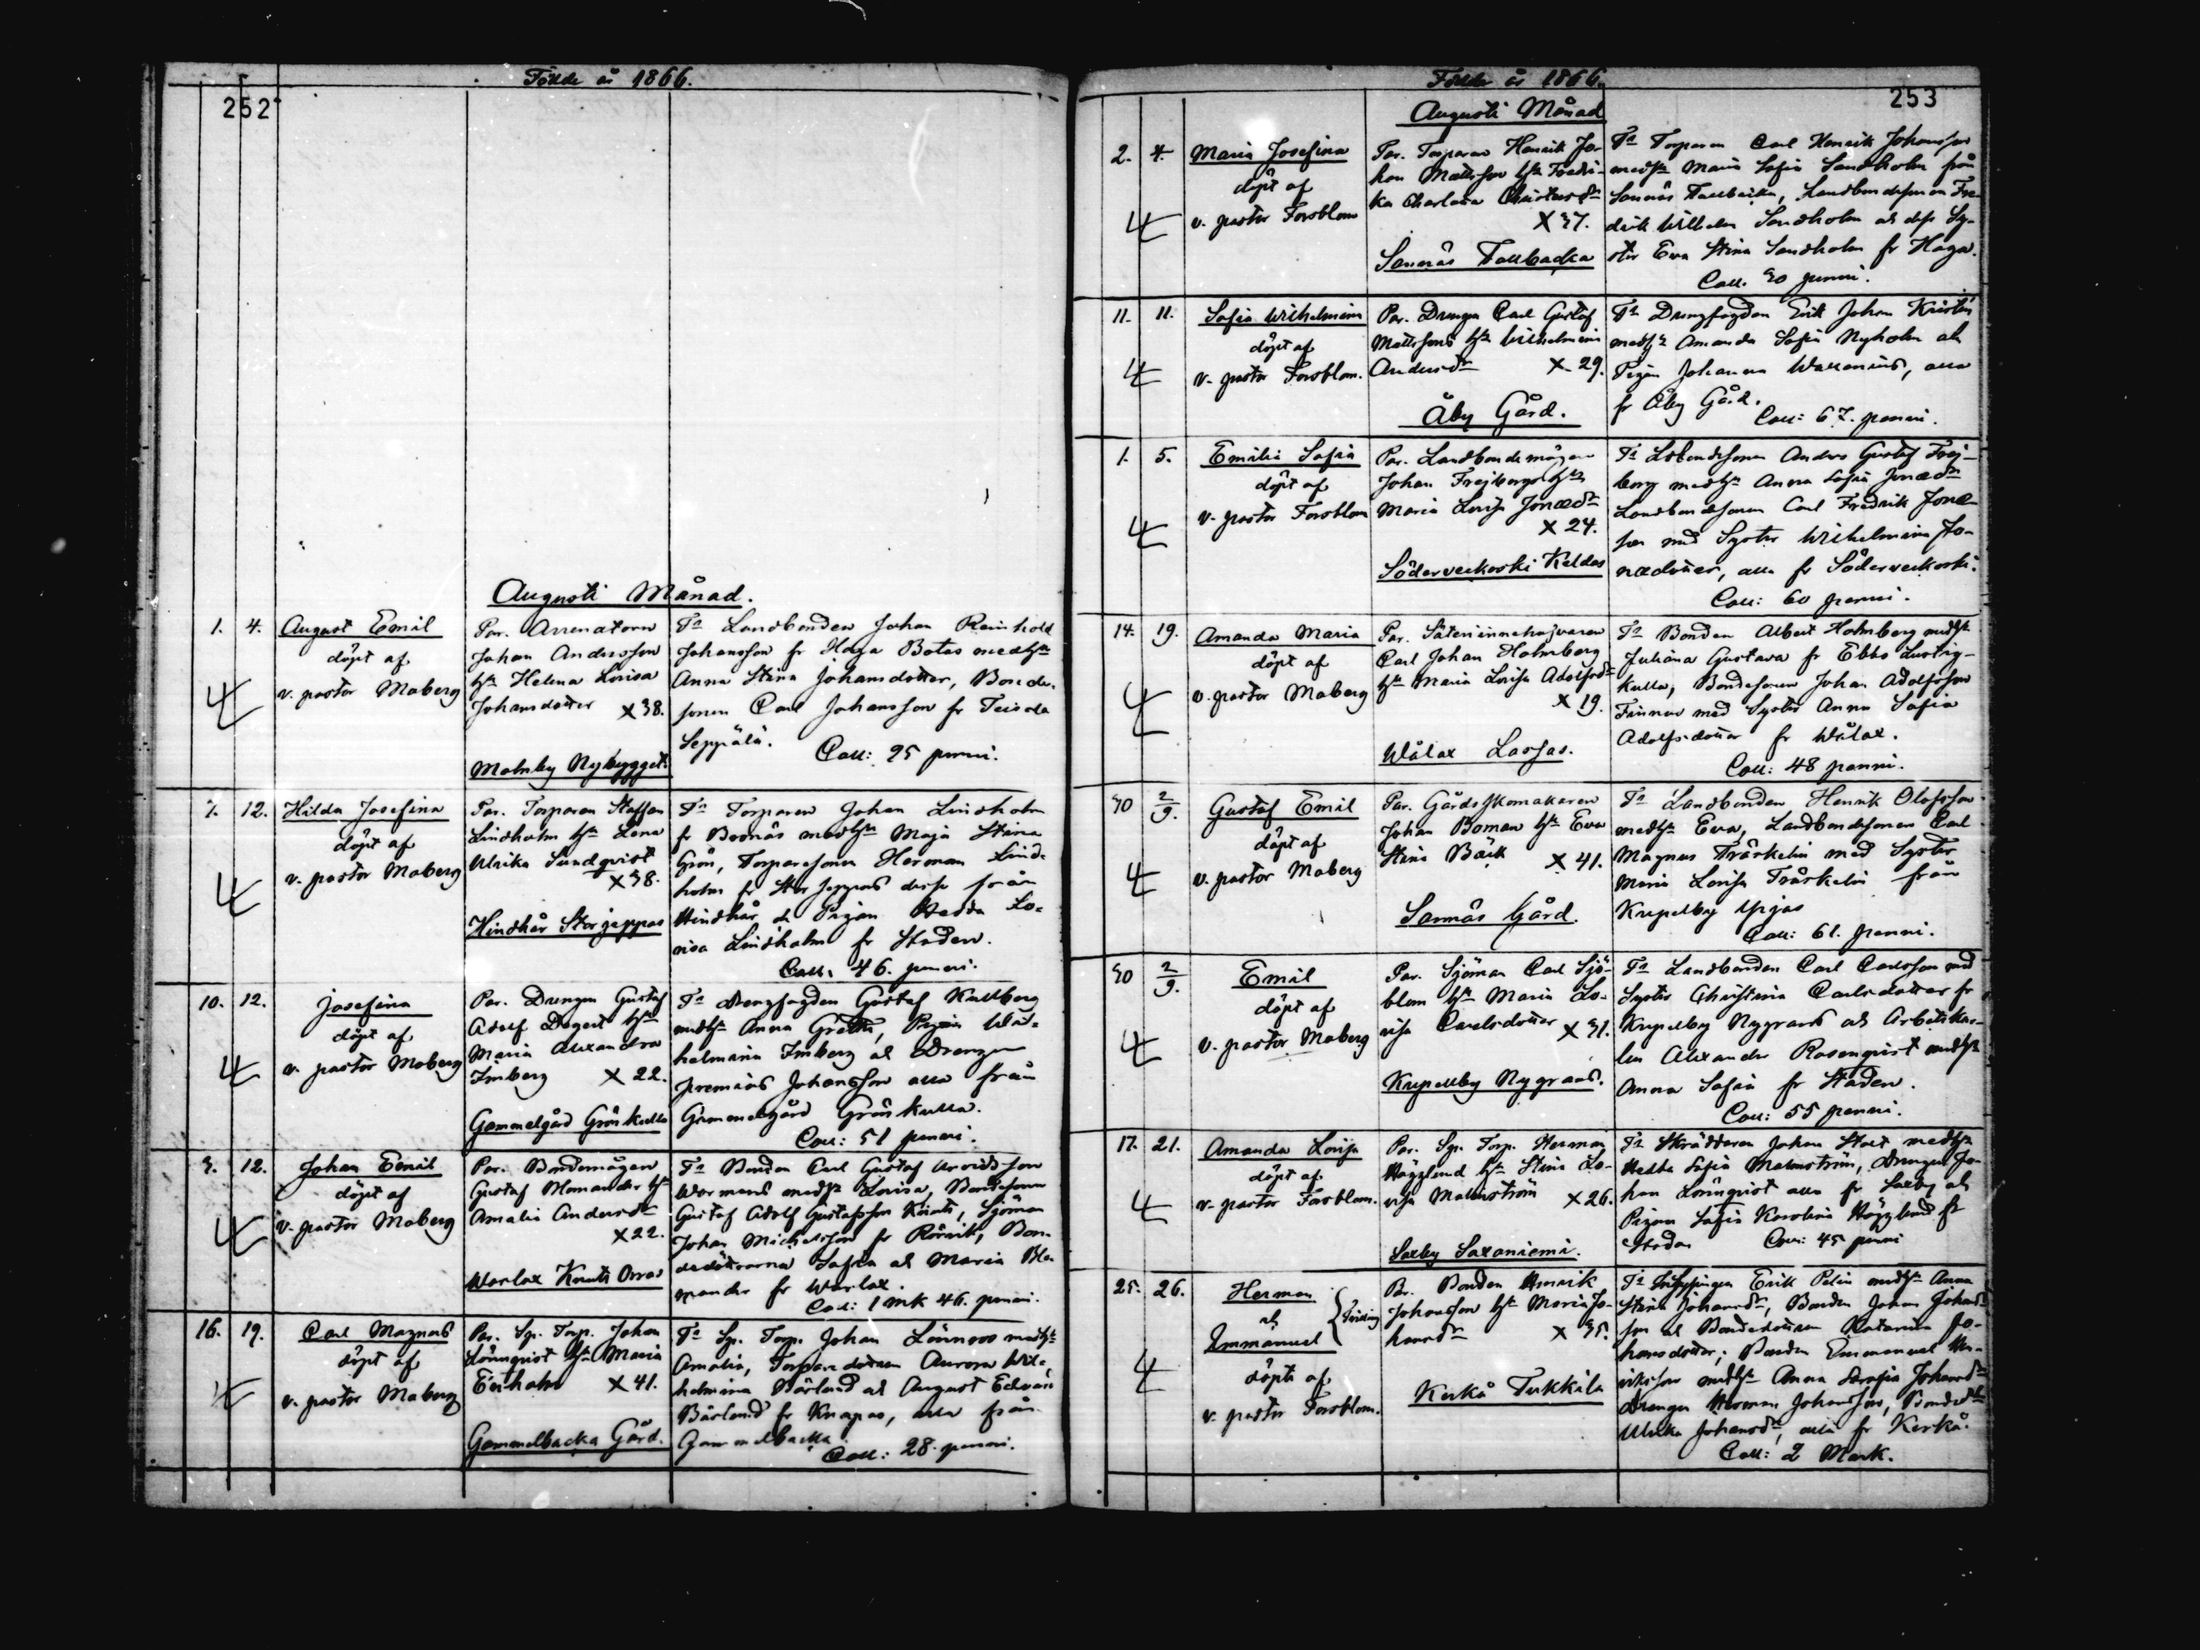 Födde år 1866.
252
Augusti Månad.
1. 4. August Emil
döpt af
v. pastor Moberg
Par. Arrenatorn
Johan Andersson
hst Helena Lovisa
Johansdotter X 38.
Malmby Nybygget.
Fr Landbonden Johan Reinhold
Johansson fr Haga Botas med hst
Anna Stina Johansdotter, Bonde-
sonen Carl Johansson fr Teisala
Seppälä. Coll: 25 penni.
7. 12. Hilda Josefina
döpt af
v. pastor Moberg
Par. Torparen Staffan
Lindholm hst Lena
Ulrika Sundqvist
X 38.
Hindhår Storjeppas
Fr Torparen Johan Lindholm
fr Bosnäs med hst Maja Stina
Grön, Torparesonen Herman Lind-
holm fr Storjeppas dess från
Hindhår, Pigan Hedda Lo-
visa Lindholm fr Staden.
Coll: 46. penni.
10. 12. Josefina
döpt af
v. pastor Moberg
Par. Drengen Gustaf
Adolf Degert hst
Maria Alexandra
Imberg X 22.
Gammelgård Grönkulla
Fr Drengfogden Gustaf Kullberg
med hst Anna Gretta, Pigan Wil-
helmina Imberg ok Drengen
Jeremias Johansson alla från
Gammelgård Grönkulla.
Coll: 51 penni.
3. 12. Johan Emil
döpt af
v. pastor Moberg
Par. Bondemågen
Gustaf Blomander hst
Amalia Andersdr
X 22.
Warlax Knuts Orras
Fr Bonden Carl Gustaf Arvidsson
Wormans med hst Lovisa, Bondesonen
Gustaf Adolf Gustafsson Knuts, Sjöman
Johan Michelsson fr Rörvik, Bon-
dedöttrarna Sofia ok Maria Blo-
mander fr Warlax.
Coll: 1 mk 46. penni.
16. 19. Carl Magnus
döpt af
v. pastor Moberg
Par. Sp. Torp. Johan
Lönnqvist hst Maria
Ekholm X 41.
Gammelbacka Gård.
Fr Sp. Torp. Johan Lönnroos med hst
Amalia, Torparedottren Aurora Wil-
helmina Bärlund ok August Edvard
Bärlund fr Knapas, alla från
Gammelbacka. Coll: 28. penni.
Födde år 1866.
253
Augusti Månad
2. 4. Maria Josefina
döpt af
v. pastor Forsblom
Par. Torparen Henrik Jo-
han Mattsson hst Fredri-
ka Charlotta Christersdr
X 37.
Sannäs Tallbacka
Fr Torparen Carl Henrik Johansson
med hst Maria Sofia Sandholm från
Sannäs Tallbacka, Landbondesonen Fre-
drik Wilhelm Sandholm ok dess Sy-
ster Eva Stina Sandholm fr Haga.
Coll. 30 penni.
11. 11. Sofia Wilhelmina
döpt af
v. pastor Forsblom.
Par. Drengen Carl Gustaf
Mattssons hst Wilhelmina
Andersdr X 29.
Åby Gård.
Fr Drengfogden Erik Johan
med hst Amanda Sofia Nyholm ok
Pigan Johanna Wallenius, alla
fr Åby Gård. Coll: 67. penni.
1. 5. Emilia Sofia
döpt af
v. pastor Forsblom
Par. Landbondemågen
Johan Frejbergs hst
Maria Lovisa Jonædr
X 24.
Söderveckoski Keldas
Fr Ldbondesonen Anders Gustaf Frej-
berg med hst Anna Sofia Jonædr
Landbondesonen Carl Fredrik Jonæ-
son med Syster Wilhelmina Jo-
nædotter, alla fr Söderveckoski.
Coll: 60 penni.
14. 19. Amanda Maria
döpt af
v. pastor Moberg
Par. Säteriinnehafvaren
Carl Johan Holmberg
hst Maria Lovisa Adolfsdr
X 19.
Wålax Lassas.
Fr Bonden Albert Holmberg med hst
Juliana Gustava fr Ebbo Lustig-
kulla, Bondesonen Johan Adolfsson
Finnas med Syster Anna Sofia
Adolfsdotter fr Wålax.
Coll: 48 penni.
30 2/9. Gustaf Emil
döpt af
v. pastor Moberg
Par. Gårdsskomakaren
Johan Boman hst Eva
Stina Bäck X 41.
Sannäs Gård.
Fr Landbonden Henrik Olofsson
med hst Eva, Landbondesonen Carl
Magnus Träskelin med Syster
Maria Lovisa Träskelin från
Kupelby Yrjas
Coll: 61. penni.
30 2/9. Emil
döpt af
v. pastor Moberg
Par. Sjöman Carl Sjö-
blom hst Maria Lo-
visa Carlsdotter X 31.
Kupellby Nygrans.
Fr Landbonden Carl Carlsson med
Syster Christina Carlsdotter fr
Kupelby Nygrans ok Arbetskar-
len Alexander Rosenqvist med hst
Anna Sofia fr Staden.
Coll: 55 penni.
17. 21. Amanda Lovisa
döpt af
v. pastor Forsblom.
Par. Sp. Torp. Herman
Hägglund hst Stina Lo-
visa Malmström X 26.
Saxby Saxaniemi.
Fr Skräddaren Johan Stolt med hst
Hedda Sofia Malmström, Drengen Jo-
han Lönnqvist alla fr Saxby ok
Pigan Sofia Karolina Hägglund fr
Staden Coll: 45 penni
25. 26. Herman
ok
Immanuel
} Tvilling
döpte af
v. pastor Forsblom.
Par. Bonden Henrik
Johansson hst Maria Jo-
hansdr X 35.
Kerkå Tukkila
Fr Erik Pelin med hst Anna
Stina Johansdr, Bonden Johan Johans-
son ok Bondedottren Katarina Jo-
hansdotter; Bonden Emmanuel Hen-
riksson med hst Anna Serafia Johansdr
Drengen Herman Johansson, Bondedr
Ulrika Johansdr, alla fr Kerkå.
Coll: 2 Mark.